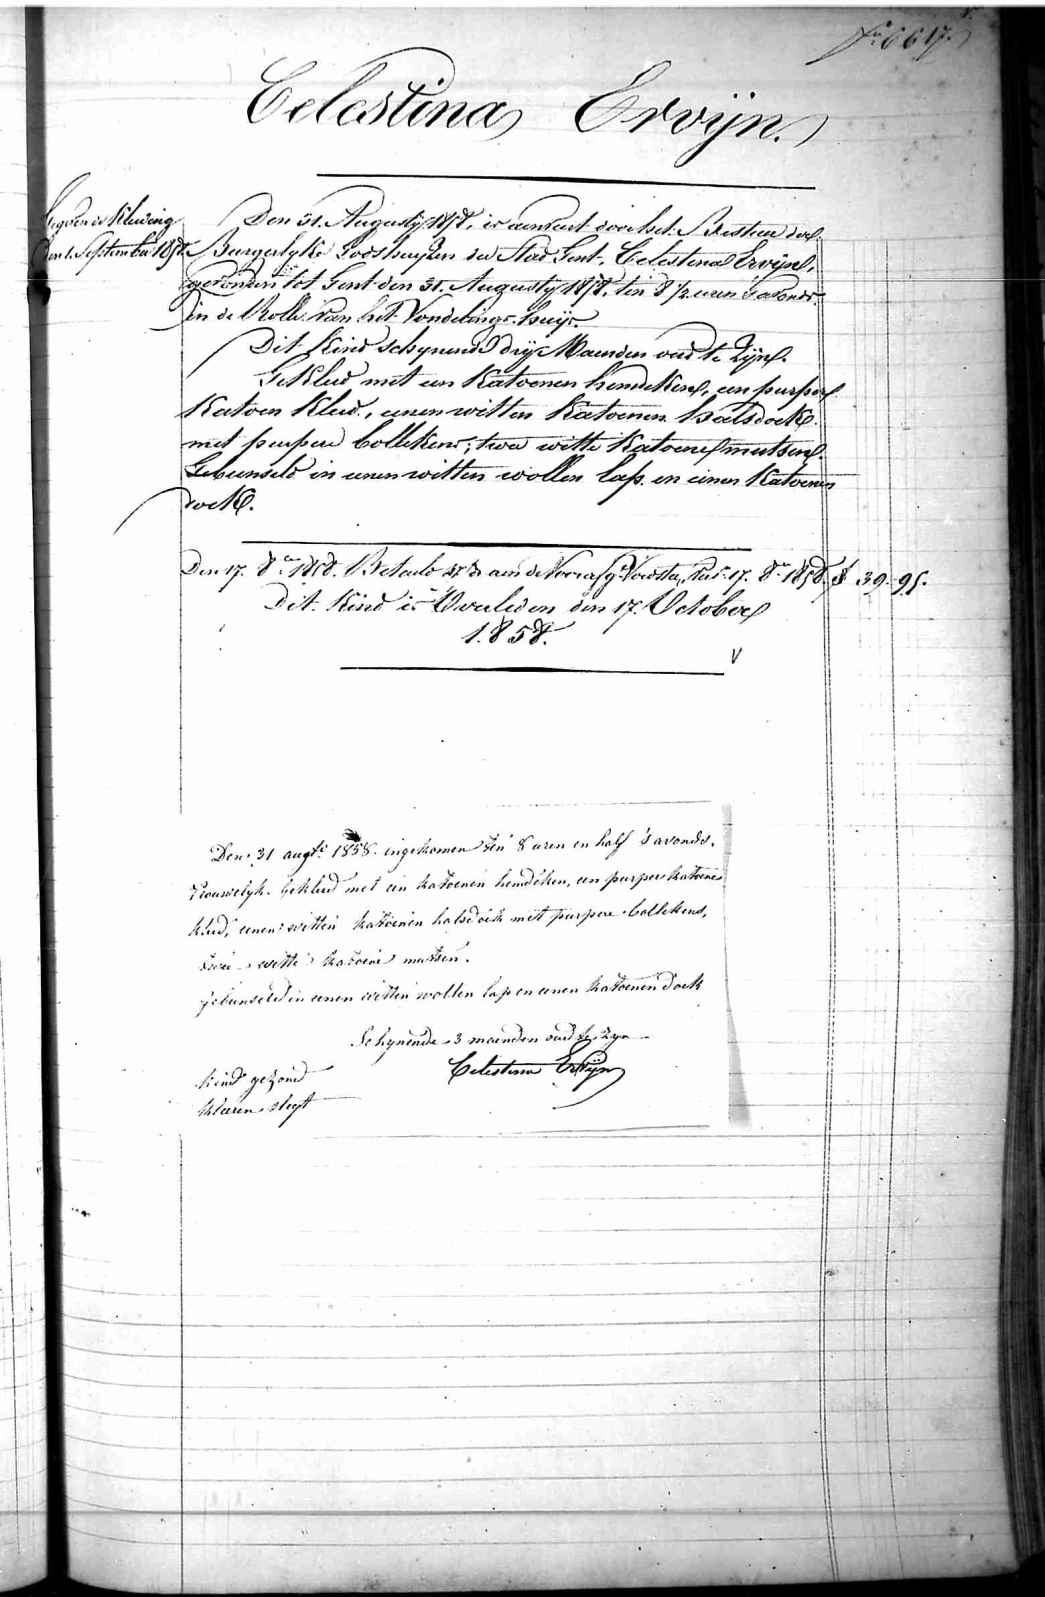 N.° 6617.
Celestina Ervijn.
den 1. September 1858.
Den 31. Augusty 1858. is aenveirt door het Bestier der
Burgerlyke Godshuyzen der Stad Gent, Celestina Ervijn,
gevonden tot Gent den 31. Augusty 1858, ten 8 1/2 uren s'avonds.
in de Rolle van het Vondelings-huys.
Dit Kind schynende dry Maenden oud te Zyn.
Gekleed met een Katoenen hemdeken, een purper
Katoen Kleed, eenen witten Katoenen halsdoek
met purpere bollekens; twee witte Katoene mutsen.
Gebunseld in eenen witten wollen lap en eenen Katoenen
doek.
Den 17. 8.er 1858. Betaeld aen de 17. 8.er 1858. 39-95.
Dit Kind is Overleden den 17. October
1858.
Den 31 augts. 1858. ingekomen ten 8 uren en half 's avonds.
Vrouwelyk. Gekleed met een katoenen hemdeken, een purper katoene
kleed, eenen witten katoenen halsdoek met purpere bollekens,
twee witte katoene mutsen.
gebunseld in eenen witten wollen lap en eenen katoenen doek
Schynende 3 maenden oud te zyn
Celestina Ervijn
kind gezond
kleeren slegt